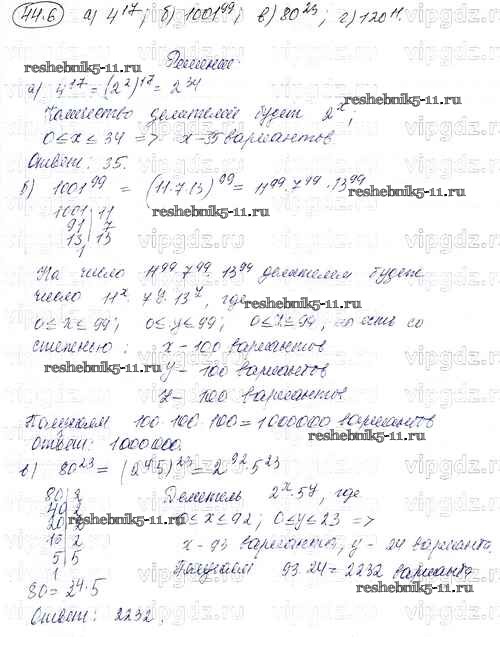 44.6 а) 4^17; б) 1001^99; в) 80^23; г) 120^11.
Решение
reshebnik5-11.ru reshebnik5-11.ru
а) 4^17 = (2^2)^17 = 2^34
Количество делителей будет 2^x;
0 ≤ x ≤ 34 => x - 35 вариантов.
Ответ: 35.
reshebnik5-11.ru
б) 1001^99 = (11·7·13)^99 = 11^99·7^99·13^99
1001|11
reshebnik5-11.ru
91|7
13|13
1
На число 11^99·7^99·13^99 делителем будет
число 11^x·7^y·13^z, где
reshebnik5-11.ru
0 ≤ x ≤ 99; 0 ≤ y ≤ 99; 0 ≤ z ≤ 99, то есть со
степенью: x - 100 вариантов
reshebnik5-11.ru
y - 100 вариантов
z - 100 вариантов
Получаем 100·100·100 = 1000000 вариантов
Ответ: 1000000.
reshebnik5-11.ru
в) 80^23 = (2^4·5)^23 = 2^92·5^23
80|2 Делитель 2^x·5^y, где
40|2
20|2 0 ≤ x ≤ 92; 0 ≤ y ≤ 23 =>
reshebnik5-11.ru
10|2 x - 93 варианта, y - 24 варианта
5|5 Получаем 93·24 = 2232 варианта
1
reshebnik5-11.ru
80 = 2^4·5
Ответ: 2232.